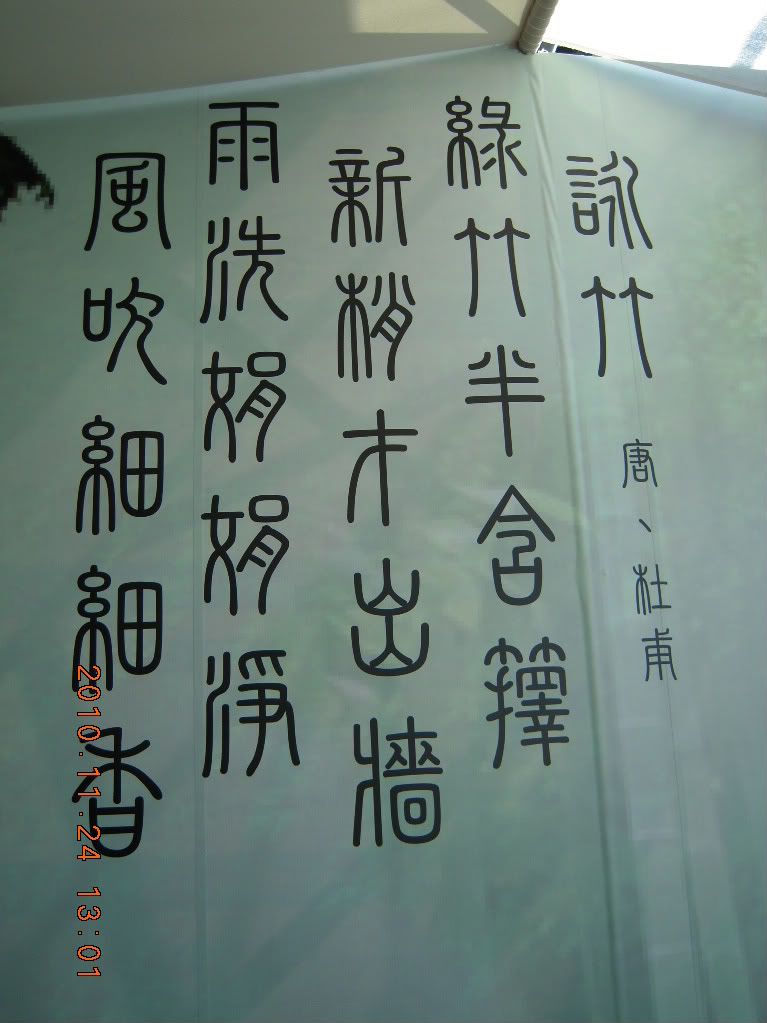 詠竹
唐、杜甫
綠竹半含籜
新梢才出牆
雨洗娟娟淨
風吹細細香
2010.11.24 13:01